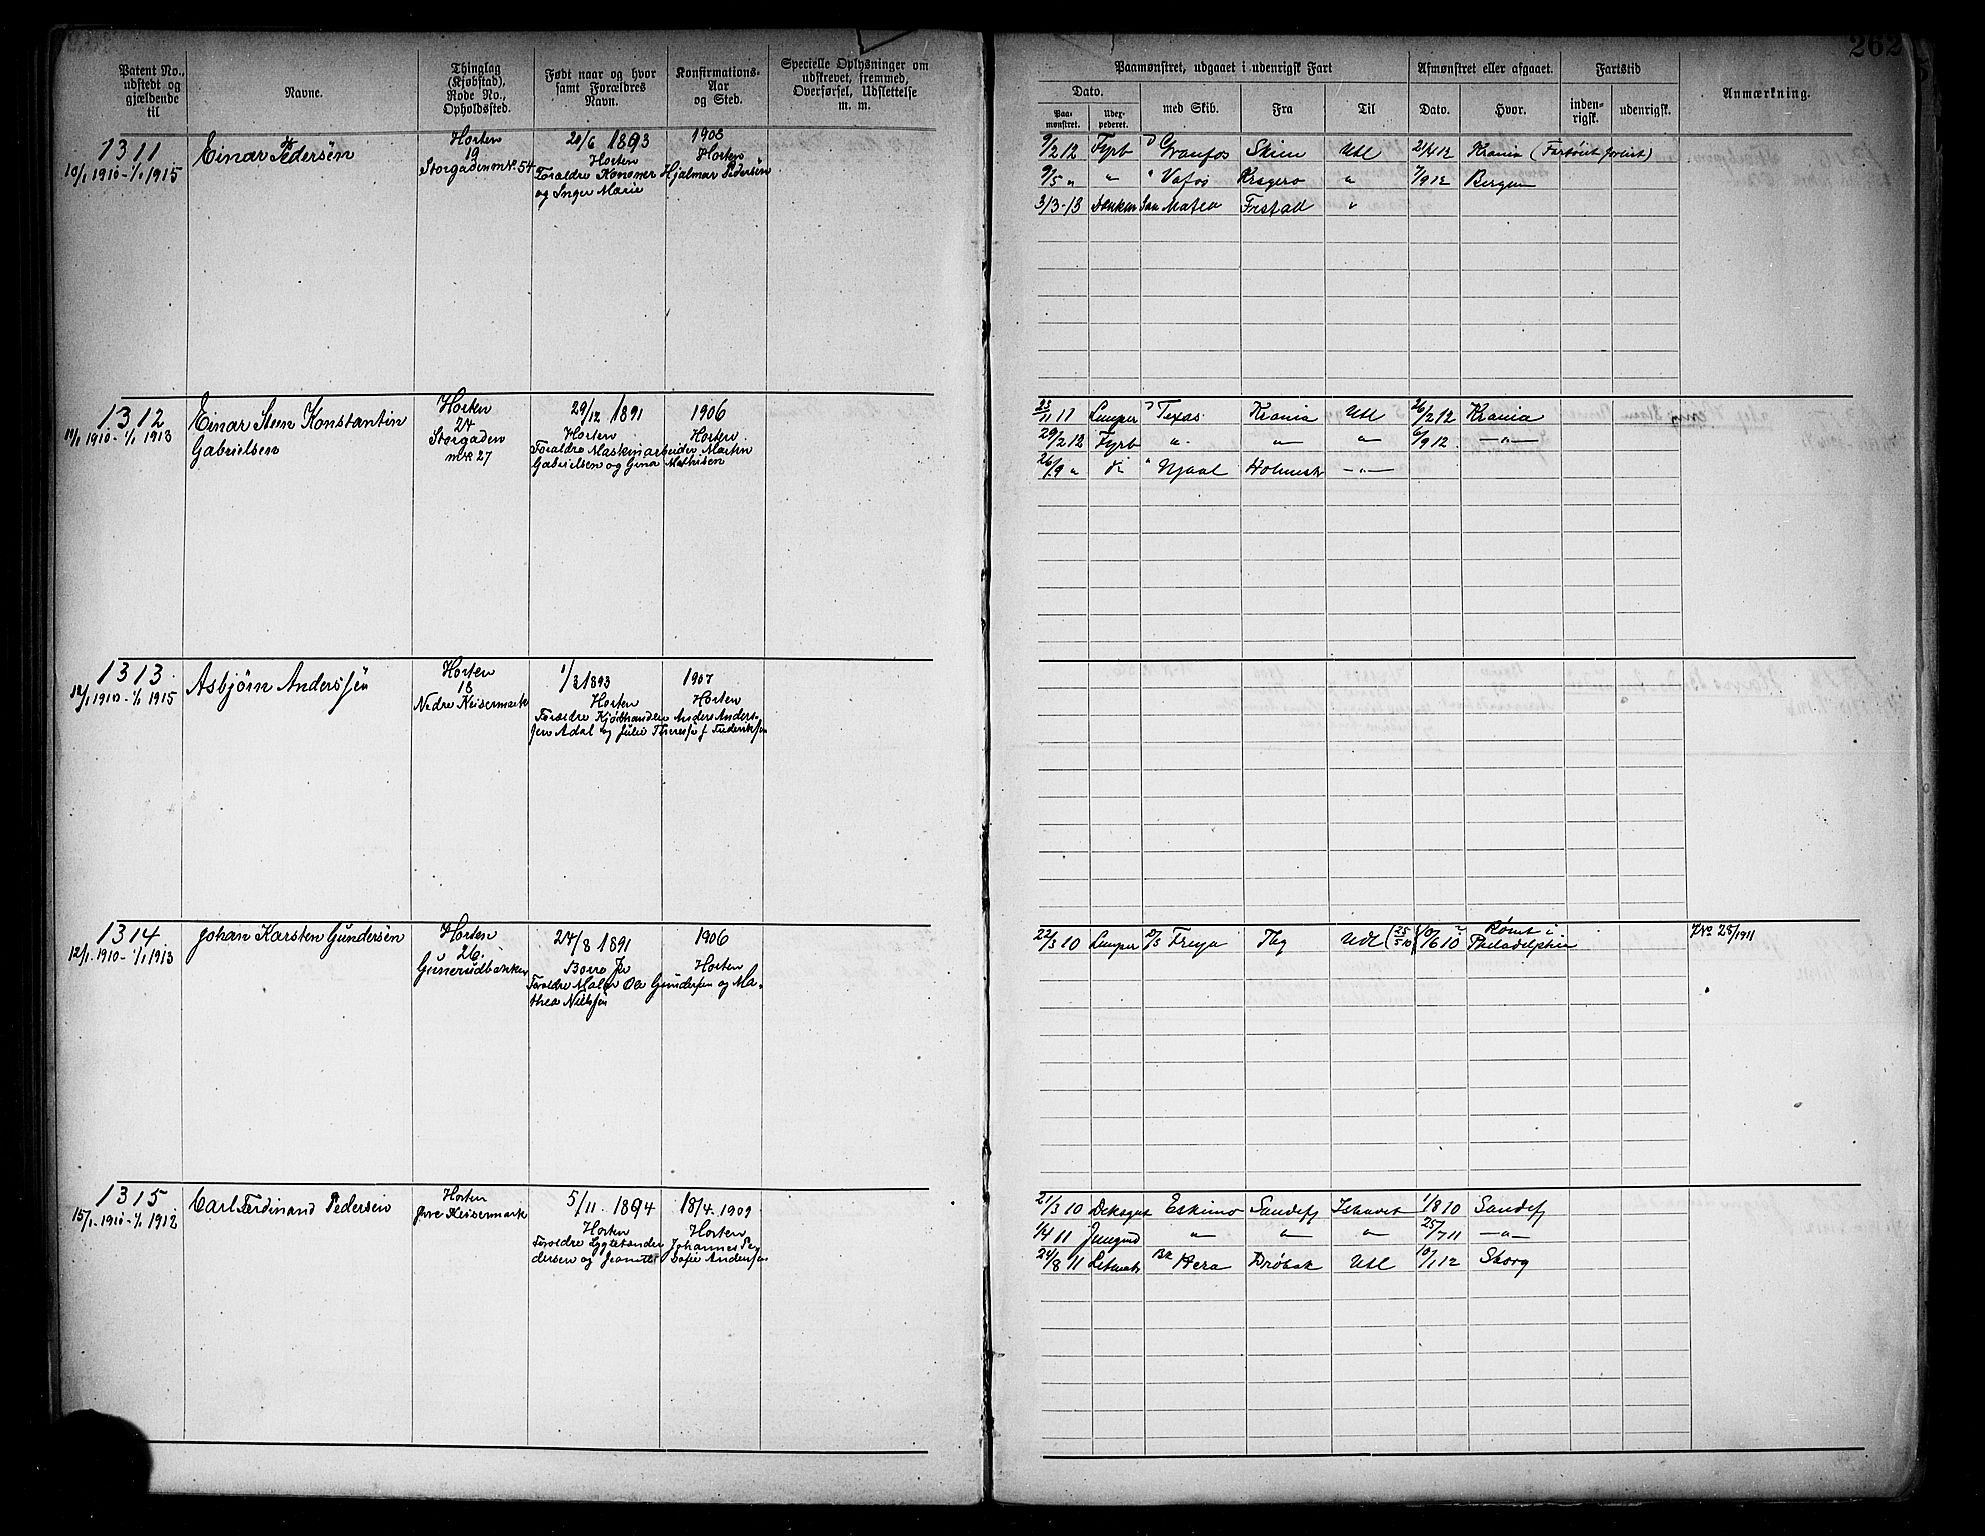 262
Patent No., udstedt og gjældende til
Navne.
Thinglag (Kjøbstad), Rode No., Opholdssted.
Født naar og hvor samt Forældres Navn.
Konfirmations-Aar og Sted.
Specielle Oplysninger om udskrevet, fremmed, Overførsel, Udslettelse m. m.
Paamønstret, udgaaet i udenrigsk Fart
Afmønstret eller afgaaet.
Fartstid
Anmærkning.
Dato.
med Skib.
Fra
Til
Dato.
Hvor.
inden-rigsk.
udenrigsk.
Paa-mønstret.
1311
10/1 1910 - 1/1 1915
Einar Pedersen
Horten
19
Storgaden mk. 54
20/6 1893
Horten
1908
Horten
Forældre Kanoner Hjalmar Pedersen
og Inger Marie
9/2 12 Fyrb D Granfos Skien Utl 21/4 12 Krania
9/5 " " " Vafos Kragerø " 7/9 12 Bergen
3/3-13 San Mateo Frstad "
1312
11/1 1910 - 1/1 1913
Einar Steen Konstantin
Gabrielsen
Horten
24
Storgaden
mk 27
29/12 1891
Horten
1906
Horten
Forældre Maskinarbeider Martin
Gabrielsen og Gina Mathisen
23/11 11 Lemper D Texas Krania Utl 26/2 12 Krania
29/2 12 Fyrb " " " 6/9 12 - " -
26/9 " do " Njaal Holmestr - " -
1313
12/1 1910 - 1/1 1915
Asbjørn Anderssen
Horten
18
Nedre Keisermark
1/3 1893
Horten
1907
Horten
Forældre Kjødhandler Anders Anders-
sen Adal og Julie
1314
12/1 1910 - 1/1 1913
Johan Karsten Gundersen
Horten
26
Gunerudbakken
24/8 1891
Borre
1906
Horten
Forældre Maler Ole Gundersen og Ma-
thea Nielsen
22/3 10 Lemper Freya Tbg Utl (25/5 10) 10/6 10 Rømt i
Philadelphia
JNo 25/1911
1315
15/1 1910 - 1/1 1912
Carl Ferdinand Pedersen
Horten
Øvre Keisermark
5/11 1894
Horten
18/4 1909
Horten
Forældre Lygtetænder Johannes Pe-
dersen og Jeanette Sofie Andersen
21/3 10 Deksgut Eskimo Sandefj Ishavet 1/8 10 Sandefj
1/4 11 Jungmd " " " 25/7 11 - " -
24/8 11 Letmatr Bk Hera Drøbak Utl 10/1 12 Skorg